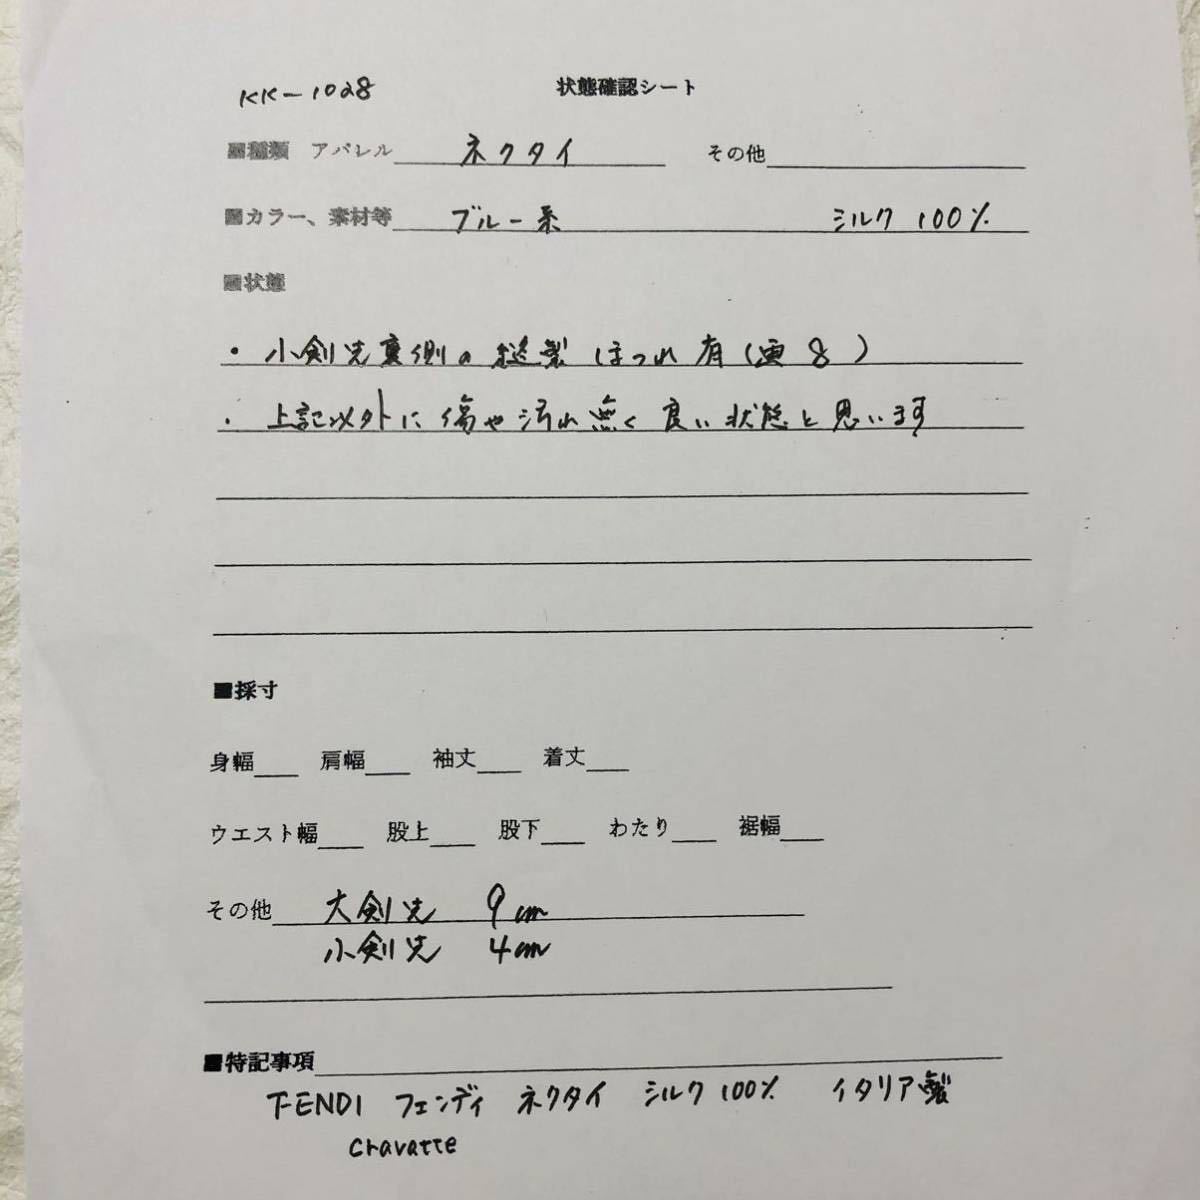 KK-1028 状態確認シート
■種類 アパレル ネクタイ その他
■カラー、素材等 ブルー系 シルク 100%
■状態
・小剣先裏側の縫製 ほつれ有(画8)
・上記以外に傷や汚れ無く良い状態と思います
■採寸
身幅 肩幅 袖丈 着丈
ウエスト幅 股上 股下 わたり 裾幅
その他 大剣先 9cm
小剣先 4cm
■特記事項
FENDI フェンディ ネクタイ シルク100% イタリア製
cravatte